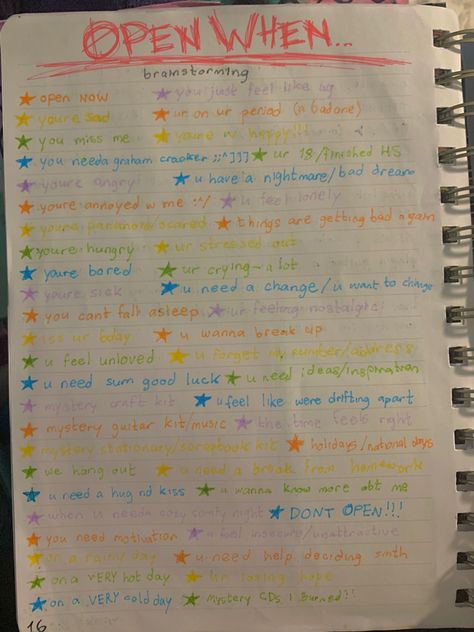 OPEN WHEN...
brainstorming
★ open now ★ you just feel like
★ youre sad ★ ur on ur period (a bad one)
★ you miss me ★ youre happy!!!
★ you needa graham cracker ;;^]]] ★ ur 18/finished HS
★ youre angry ★ u have a nightmare/bad dream
★ youre annoyed w me :-/ ★ u feel lonely
★ youre paranoid/scared ★ things are getting bad again
★ youre hungry ★ ur stressed out
★ youre bored ★ ur crying ~ a lot
★ youre sick ★ u need a change/u want to change
★ you cant fall asleep ★ ur feeling nostalgic
★ iss ur bday ★ u wanna break up
★ u feel unloved ★ u forget my number/address
★ u need sum good luck ★ u need ideas/inspiration
★ mystery craft kit ★ u feel like were drifting apart
★ mystery guitar kit/music ★ the time feels right
★ mystery stationary/scrapbook kit ★ holidays/national days
★ we hang out ★ u need a break from homework
★ u need a hug nd kiss ★ u wanna know more abt me
★ when u needa cosy comfy night ★ DONT OPEN!!!
★ you need motivation ★ u feel insecure/unattractive
★ on a rainy day ★ u need help deciding smth
★ on a VERY hot day ★ ur losing hope
★ on a VERY cold day ★ Mystery CDs I Burned!!
16